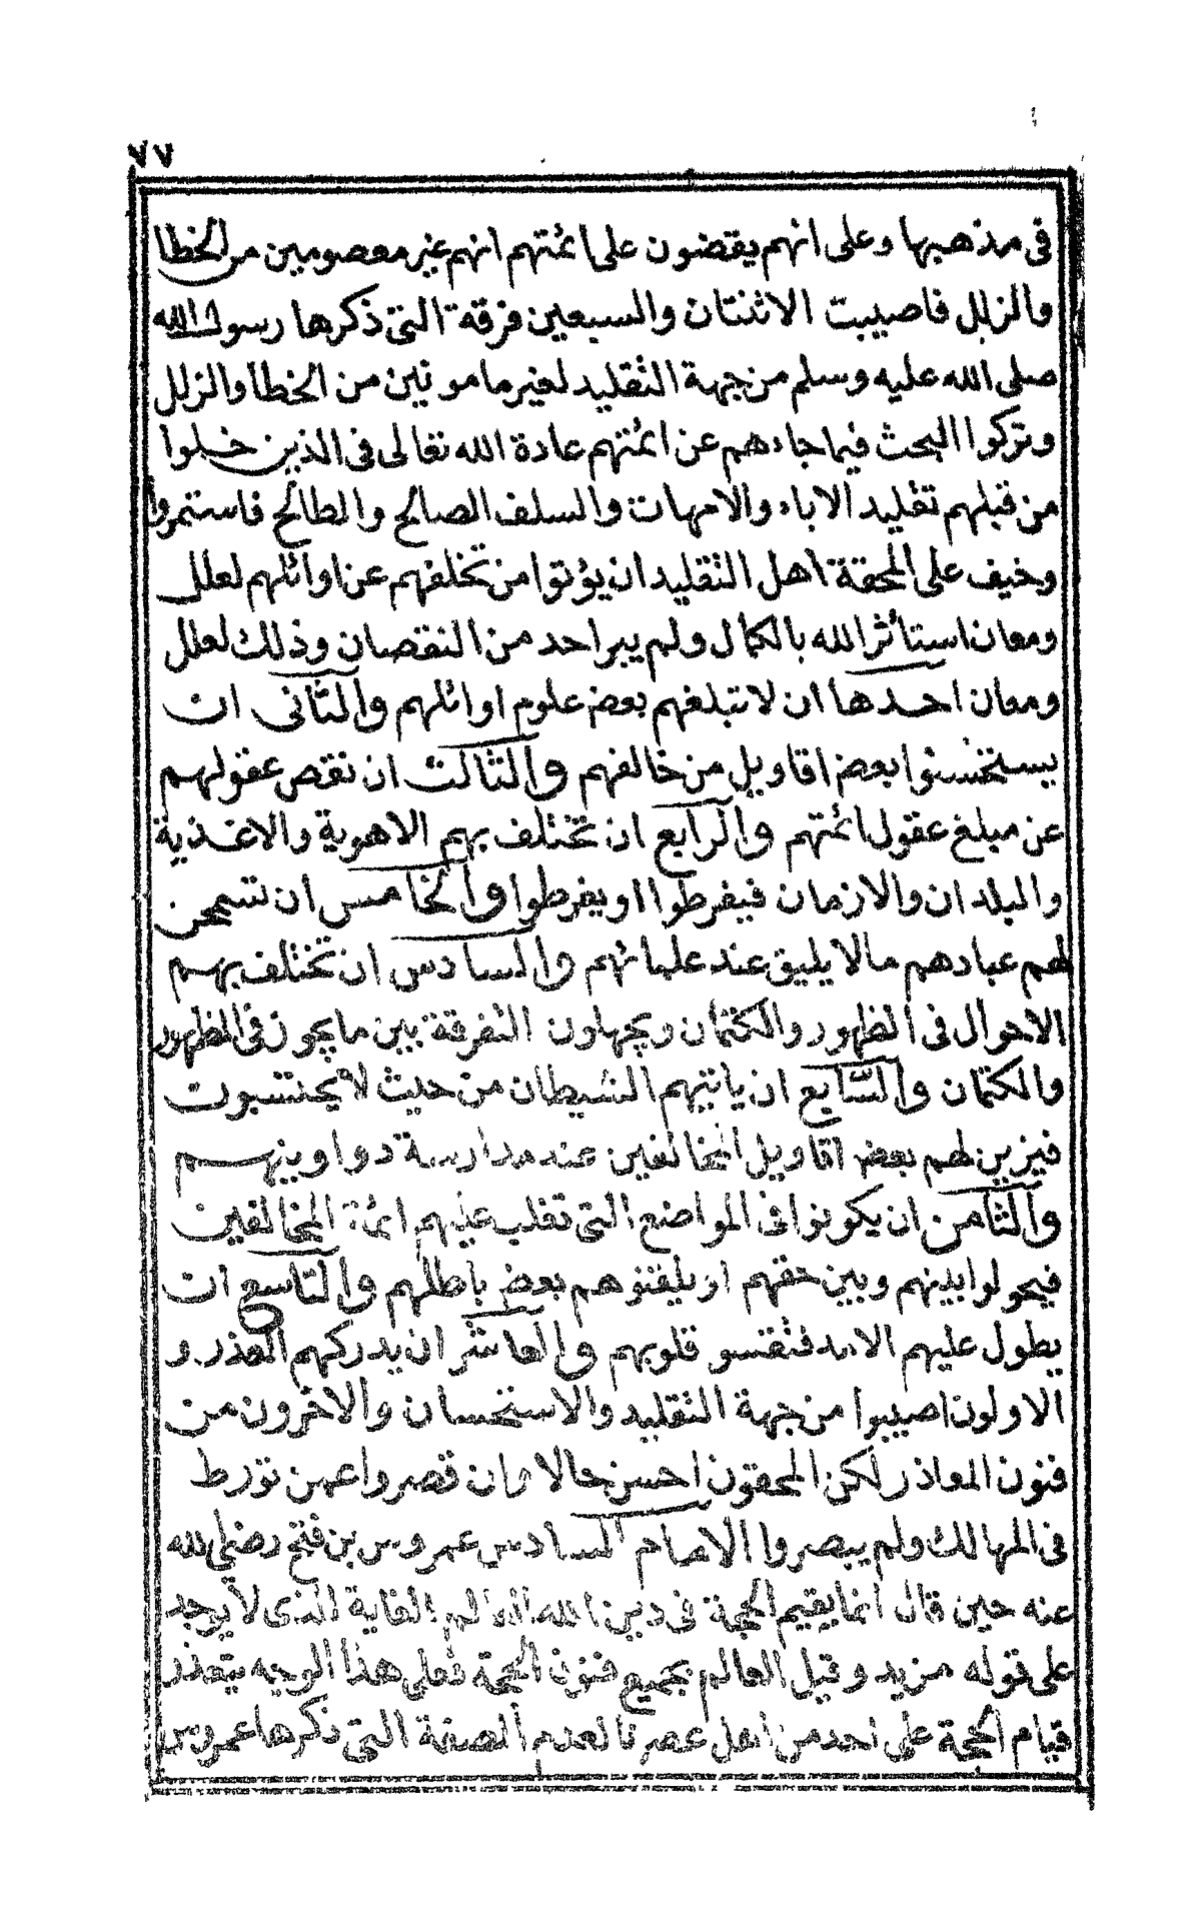 ٧٧
فى مذهبها وعلى انهم يقضون على ائمتهم انهم غير معصومين من الخطا
والزلل فاصيبت الاثنتان والسبعين فرقة التى ذكرها رسول الله
صلى الله عليه وسلم من جهة التقليد لغير مامونين من الخطا والزلل
وتركوا البحث فيما جاءهم عن ائمتهم عادة الله تعالى فى الذين خلوا
من قبلهم تقليد الاباء والامهات والسلف الصالح والطالح فاستمروا
وخيف على المحقة اهل التقليد ان يؤتوا من تخلفهم عن اوائلهم لعلل
ومعان استأثر الله بالكمال ولم يبر احد من النقصان وذلك لعلل
ومعان احدها ان لا تبلغهم بعض علوم اوائلهم والثانى ان
يستحسنوا بعض اقاويل من خالفهم والثالث ان نقص عقولهم
عن مبلغ عقول ائمتهم والرابع ان تختلف بهم الاهوية والاغذية
والبلدان والازمان فيفرطوا او يفرطوا والخامس ان تسمحن
لهم عبادهم مالا يليق عند علمائهم والسادس ان تختلف بهم
الاحوال فى الظهور والكتمان ويجهلون التفرقة بين ما يجوز فى الظهور
والكتمان والسابع ان ياتيهم الشيطان من حيث لا يحتسبون
فيزين لهم بعض اقاويل المخالفين عند مدارسة دواوينهم
والثامن ان يكونوا فى المواضع التى تغلب عليهم ائمة المخالفين
فيحولوا بينهم وبين حقهم او يلقنوهم بعض باطلهم والتاسع ان
يطول عليهم الامد فتقسو قلوبهم والعاشر ان يدركهم العذر و
الاولون اصيبوا من جهة التقليد والاستحسان والاخرون من
فنون المعاذر لكن المحقون احسن حالا وان قصروا عمن تورط
فى المهالك ولم يبصروا الامام السادس عمروس بن فتح رضى الله
عنه حين قال انما يقيم الحجة فى دين الله العالم الغاية الذى لا يوجد
على قوله مزيد وقيل العالم بجميع فنون الحجة فعلى هذا الوجه يتعذر
قيام الحجة على احد من اهل عصرنا لعدم الصفة التى ذكرها عمروس